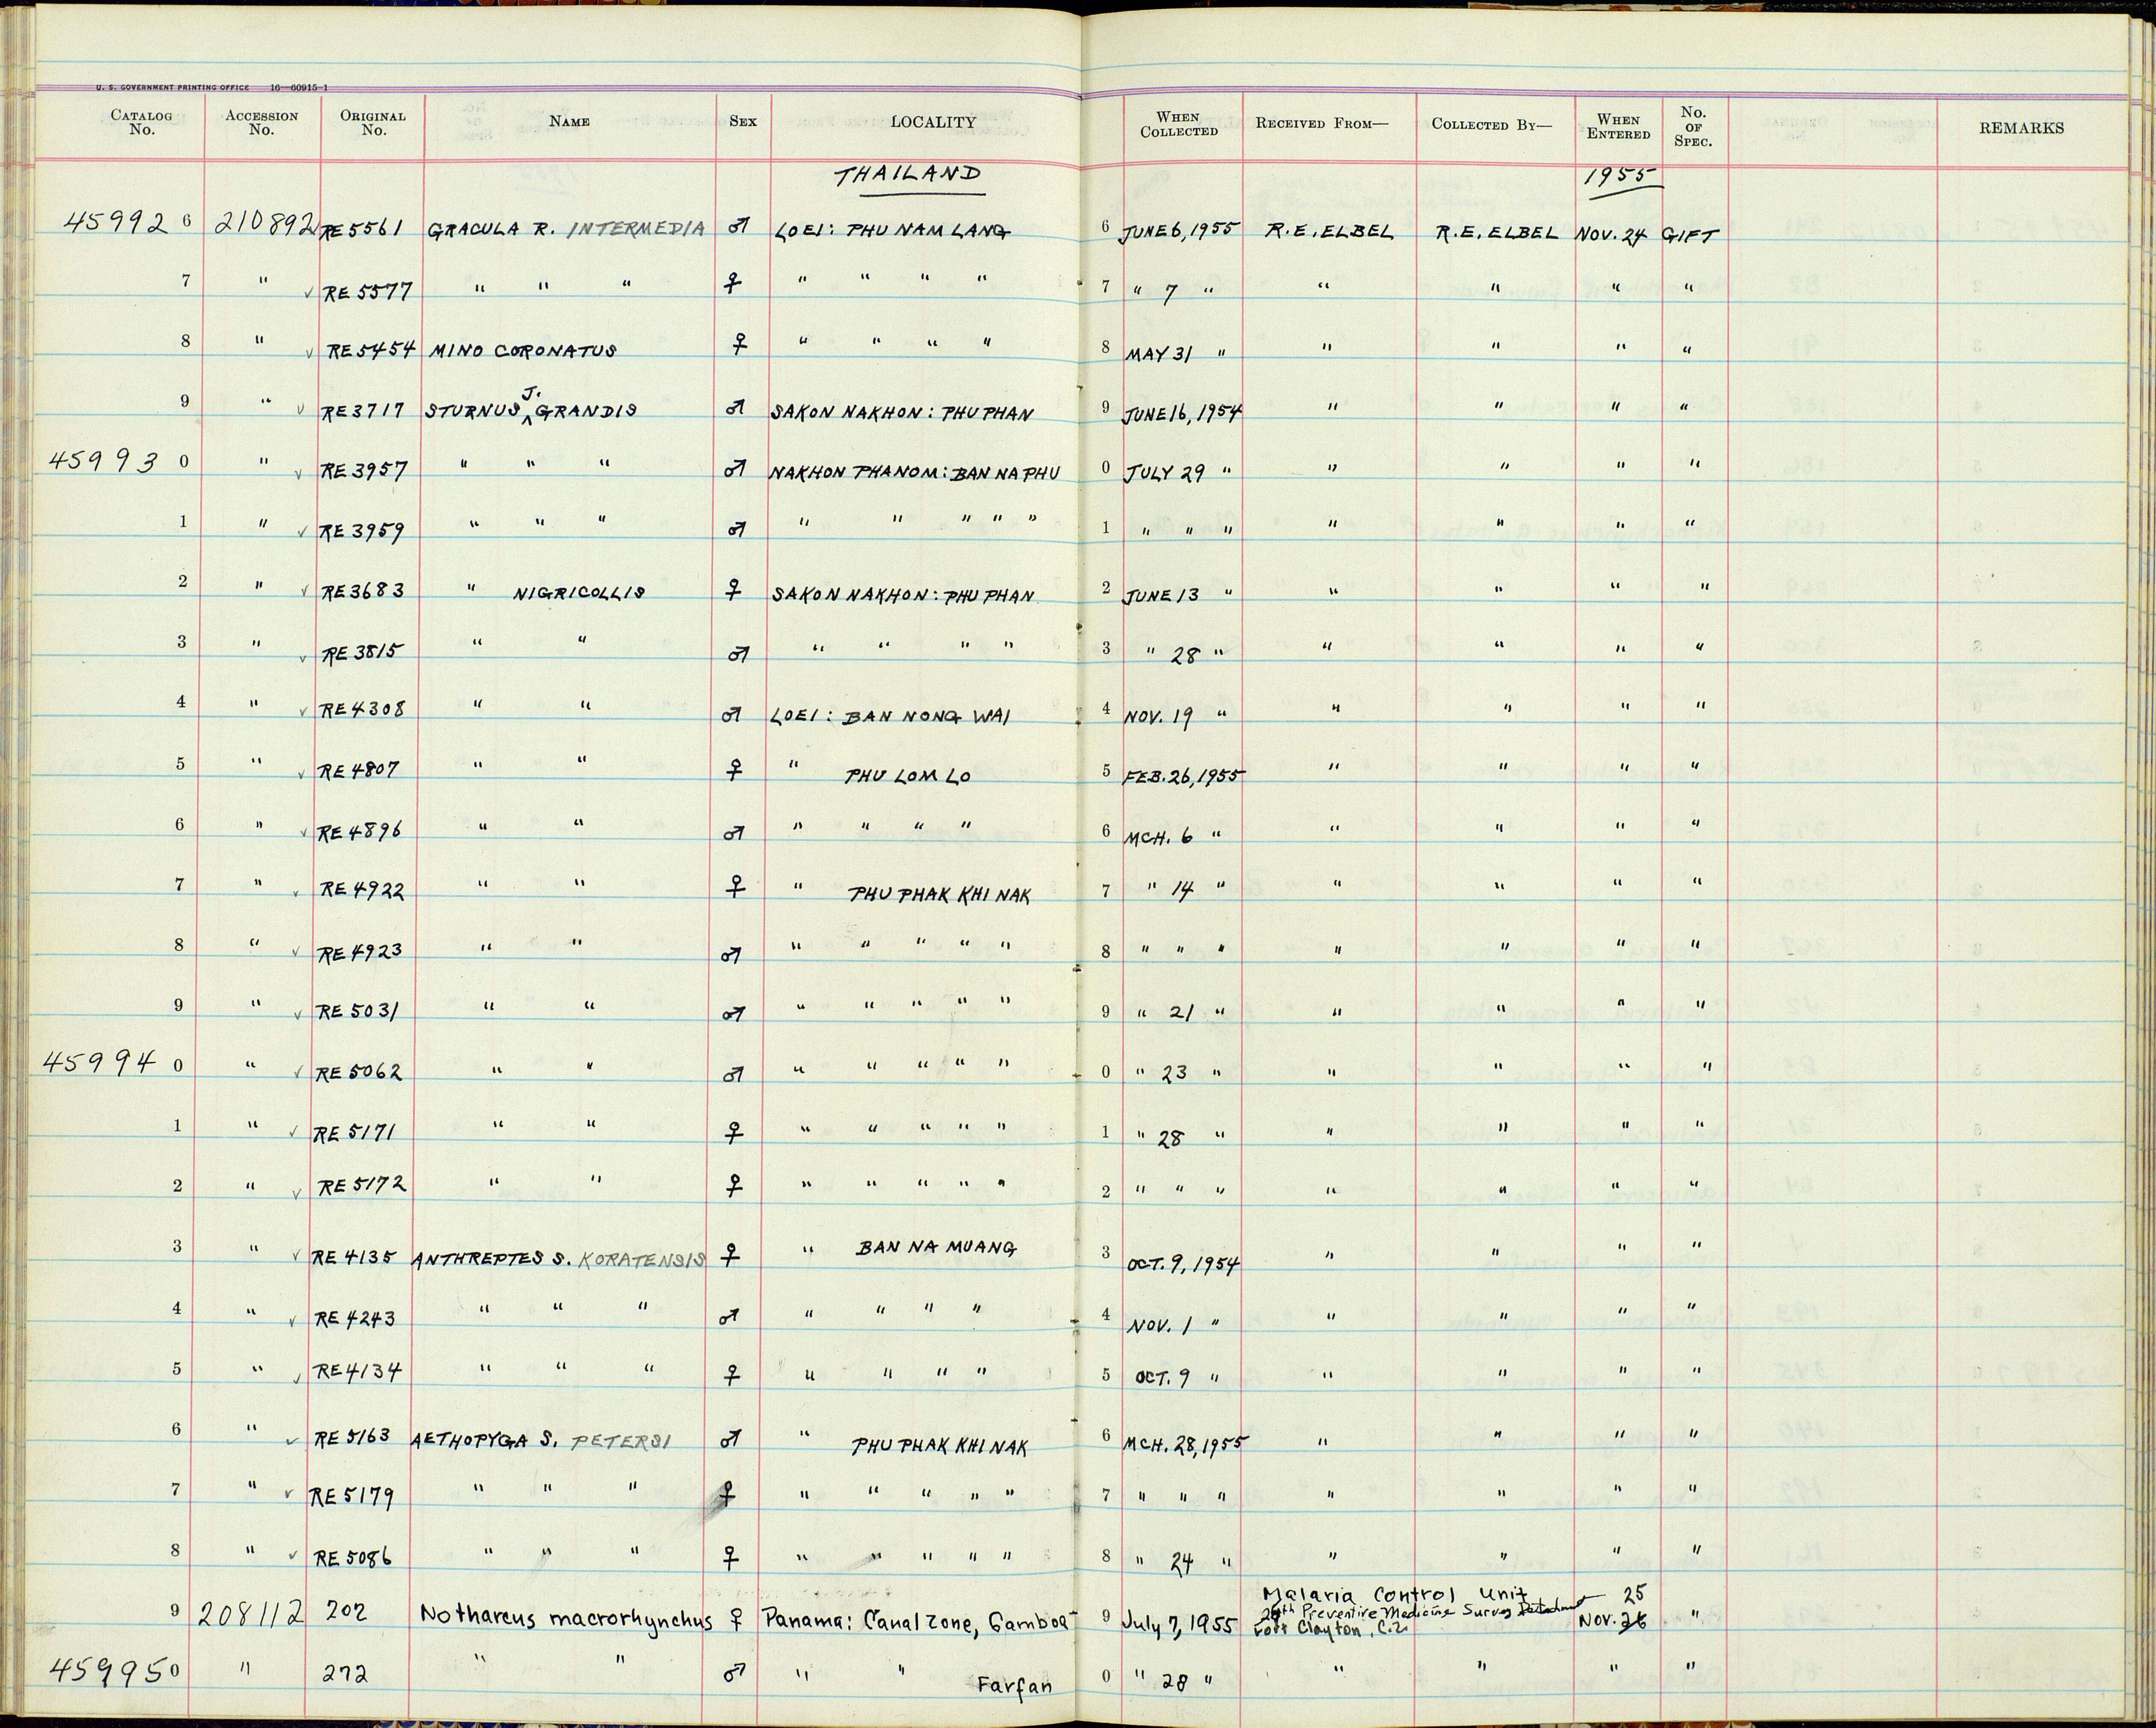 U. S. GOVERNMENT PRINTING OFFICE 16—60915-1
CATALOG No. ACCESSION No. ORIGINAL No. NAME SEX LOCALITY WHEN COLLECTED RECEIVED FROM— COLLECTED BY— WHEN ENTERED No. OF SPEC. REMARKS
THAILAND 1955
45992 6 210892 RE 5561 GRACULA R. INTERMEDIA ♂ LOEI: PHU NAM LANG 6 JUNE 6, 1955 R.E. ELBEL R.E. ELBEL NOV. 24 GIFT
7 " ✓ RE 5577 " " " ♀ " " " " 7 " 7 " " " " "
8 " ✓ RE 5454 MINO CORONATUS ♀ " " " " 8 MAY 31 " " " " "
9 " ✓ RE 3717 STURNUS J. GRANDIS ♂ SAKON NAKHON: PHU PHAN 9 JUNE 16, 1954 " " " "
45993 0 " ✓ RE 3957 " " " ♂ NAKHON PHANOM: BAN NA PHU 0 JULY 29 " " " " "
1 " ✓ RE 3959 " " " ♂ " " " " " 1 " " " " " " "
2 " ✓ RE 3683 " NIGRICOLLIS ♀ SAKON NAKHON: PHU PHAN 2 JUNE 13 " " " " "
3 " ✓ RE 3815 " " ♂ " " " " 3 " 28 " " " " "
4 " ✓ RE 4308 " " ♂ LOEI: BAN NONG WAI 4 NOV. 19 " " " " "
5 " ✓ RE 4807 " " ♀ " PHU LOM LO 5 FEB. 26, 1955 " " " "
6 " ✓ RE 4896 " " ♂ " " " " 6 MCH. 6 " " " " "
7 " ✓ RE 4922 " " ♀ " PHU PHAK KHI NAK 7 " 14 " " " " "
8 " ✓ RE 4923 " " ♂ " " " " " 8 " " " " " " "
9 " ✓ RE 5031 " " ♂ " " " " " 9 " 21 " " " " "
45994 0 " ✓ RE 5062 " " ♂ " " " " " 0 " 23 " " " " "
1 " ✓ RE 5171 " " ♀ " " " " " 1 " 28 " " " " "
2 " ✓ RE 5172 " " ♀ " " " " " 2 " " " " " " "
3 " ✓ RE 4135 ANTHREPTES S. KORATENSIS ♀ " BAN NA MUANG 3 OCT. 9, 1954 " " " "
4 " ✓ RE 4243 " " " ♂ " " " " 4 NOV. 1 " " " " "
5 " ✓ RE 4134 " " " ♀ " " " " 5 OCT. 9 " " " " "
6 " ✓ RE 5163 AETHOPYGA S. PETERSI ♂ " PHU PHAK KHI NAK 6 MCH. 28, 1955 " " " "
7 " ✓ RE 5179 " " " ♀ " " " " " 7 " " " " " " "
8 " ✓ RE 5086 " " " ♀ " " " " " 8 " 24 " " " " "
Malaria Control Unit 25
9 208112 202 Notharcus macrorhynchus ♀ Panama: Canal Zone, Gamboa 9 July 7, 1955 Preventive Medicine Survey Detachment Nov. 26 "
Fort Clayton, C.Z.
459950 " 272 " " ♂ " " Farfan 0 " 28 " " " " "